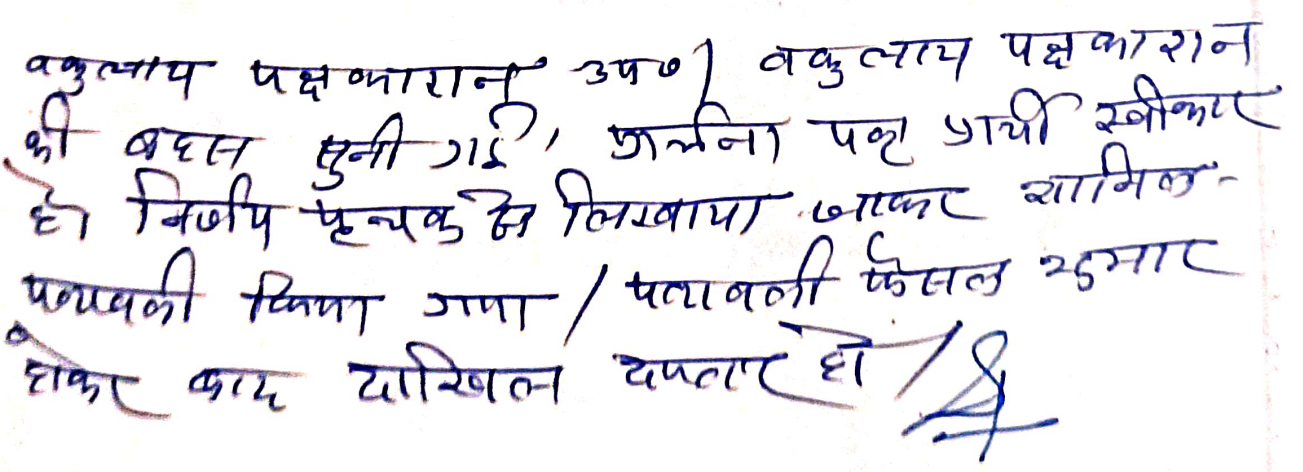 वकुलाय पक्षकारान उप०/ वकुलाय पक्षकारान
की बहस सुनी गई, प्रार्थना पत्र प्रार्थी स्वीकार
हो निर्णय पृथक से लिखवाया जाकर शामिल-
पत्रावली किया गया / पत्रावली फैसल शुमार
होकर बाद दाखिल दफ्तर हो /